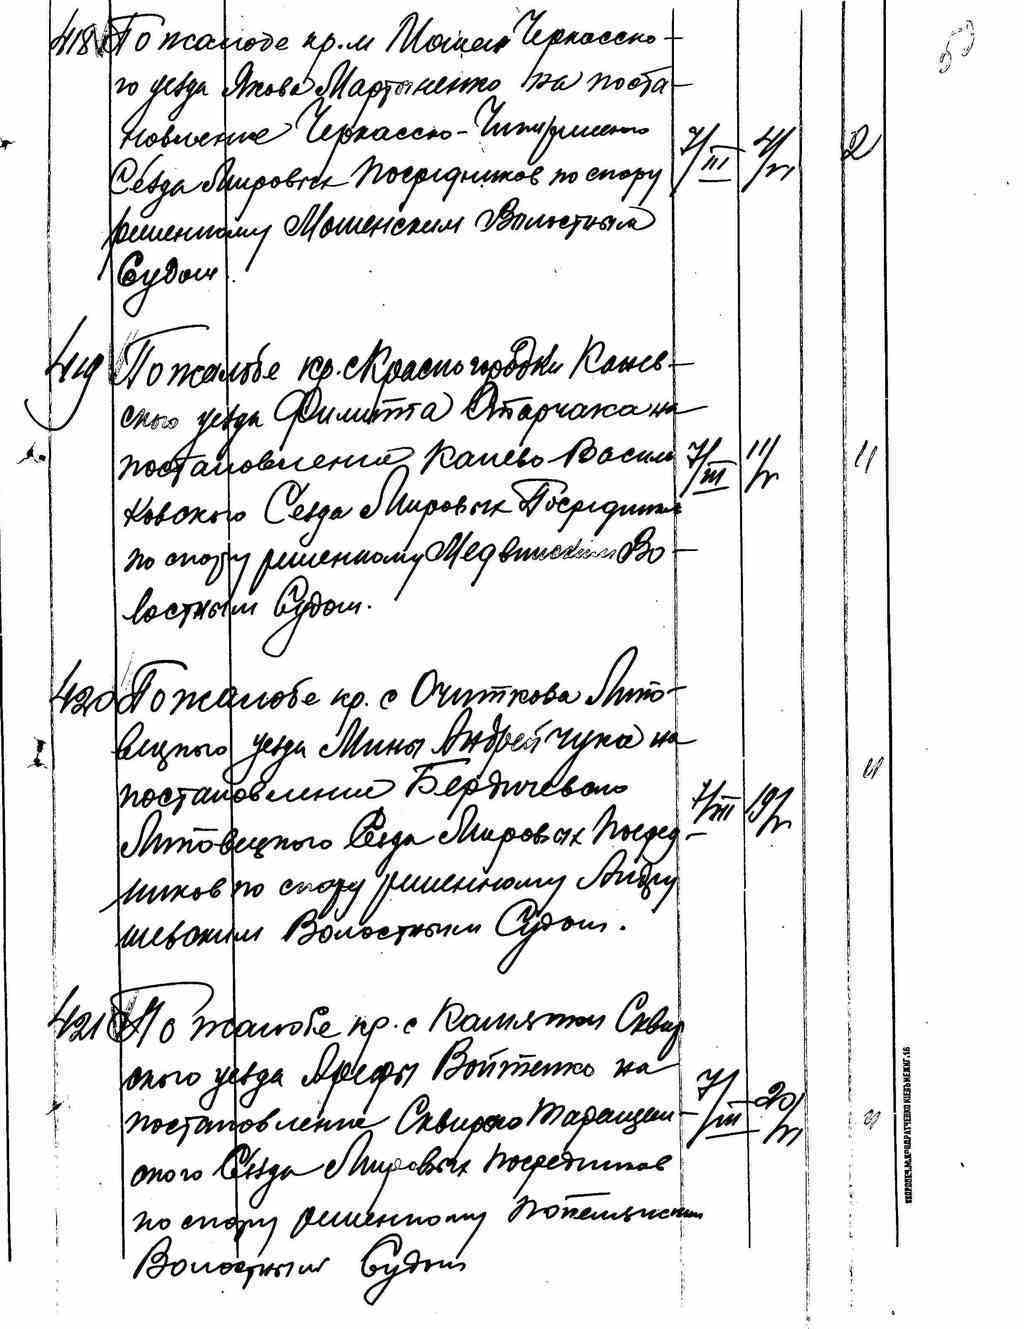 418 По жалобе кр. м Мошен Черкасско-
го уезда Якова Мартыненко на поста-
новление Черкасско-Чигиринского
Сезда Мировых Посредников по спору
7/III 4/V 2
решенному Мошенским Волостным
Судом.
419 По жалобе кр. с Красногородки Канев-
ского уезда Филиппа Старчака на
постановление Канево Василь
7/III 11/V 11
ковского Сезда Мировых Посредников
по спору решенному Медвинским Во-
лостным Судом.
420 По жалобе кр. с Очиткова Липо-
вецкого уезда Мины Андрейчука на
постановление Бердичевско
7/III 19/V
Липовецкого Сезда Мировых Посред-
ников по спору решенному Андру
шевским Волостным Судом.
421 По жалобе кр. с Камянки Сквир
ского уезда Арефы Войтенко на
постановление Сквирско Таращан-
7/III 20/VI
ского Сезда Мировых Посредников
по спору решенному Попельнским
Волостным Судом